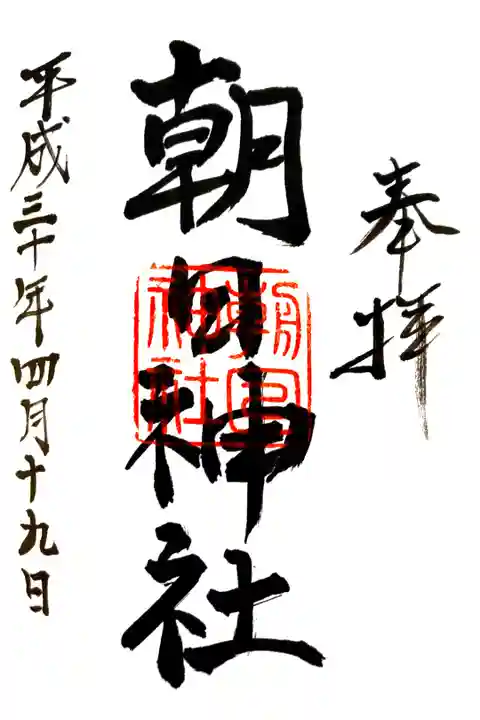 奉拝
朝日神社
朝日神社
平成三十年四月十九日